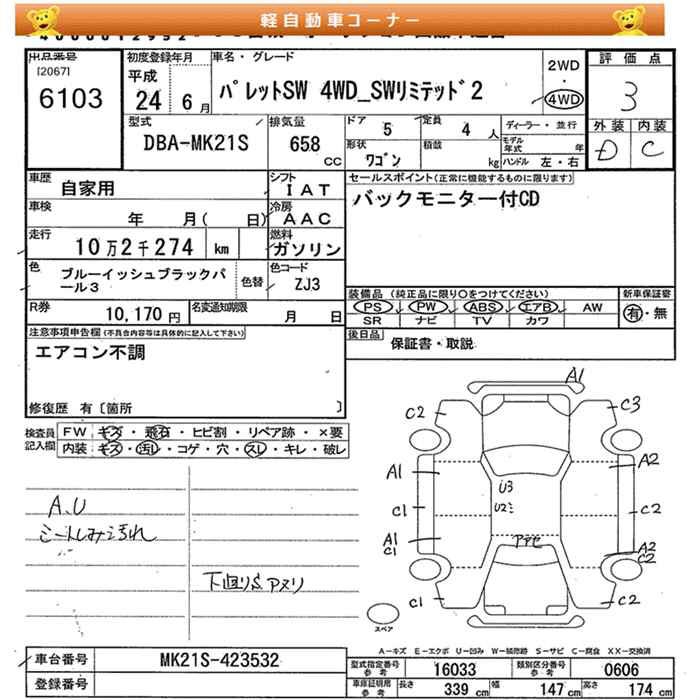 軽自動車コーナー
出品番号
[2067]
6103
初度登録年月
平成
24年 6月
車名・グレード
パレットSW 4WD_SWリミテッド2
2WD
・
4WD
評価点
3
外装 内装
D C
型式
DBA-MK21S
排気量
658
CC
ドア 5
定員 4人
ディーラー・並行
形状
ワゴン
積載
kg
モデル年式 年
ハンドル 左・右
車歴
自家用
シフト
IAT
車検
年 月( 日)
冷房
AAC
走行
10万2千274 km
燃料
ガソリン
色
ブルーイッシュブラックパール3
色替
色コード
ZJ3
R券
10,170円
名変通知期限
月 日
セールスポイント(正常に機能するものに限ります)
バックモニター付CD
装備品 (純正品に限り○をつけてください)
新車保証書
PS PW ABS エアB AW
SR ナビ TV カワ
有・無
後日品
保証書・取説
注意事項申告欄(不具合内容等は具体的に記入して下さい)
エアコン不調
修復歴 有〔箇所 〕
検査員記入欄
FW キズ・飛石・ヒビ割・リペア跡・×要
内装 キズ・汚レ・コゲ・穴・スレ・キレ・破レ
A.U
シートしみ汚れ
下廻りS アメリ
A1
C2
C3
A1
A2
U3
C1
U2ミ
C2
A1
C1
アナセ
A2
C2
C1
C2
スペア
A-キズ E-エクボ U-凹み W-補修跡 S-サビ C-腐食 XX-交換済
車台番号
MK21S-423532
登録番号
型式指定番号
参考
16033
類別区分番号
参考
0606
車庫証明用
参考
長さ 339cm
幅 147cm
高さ 174cm